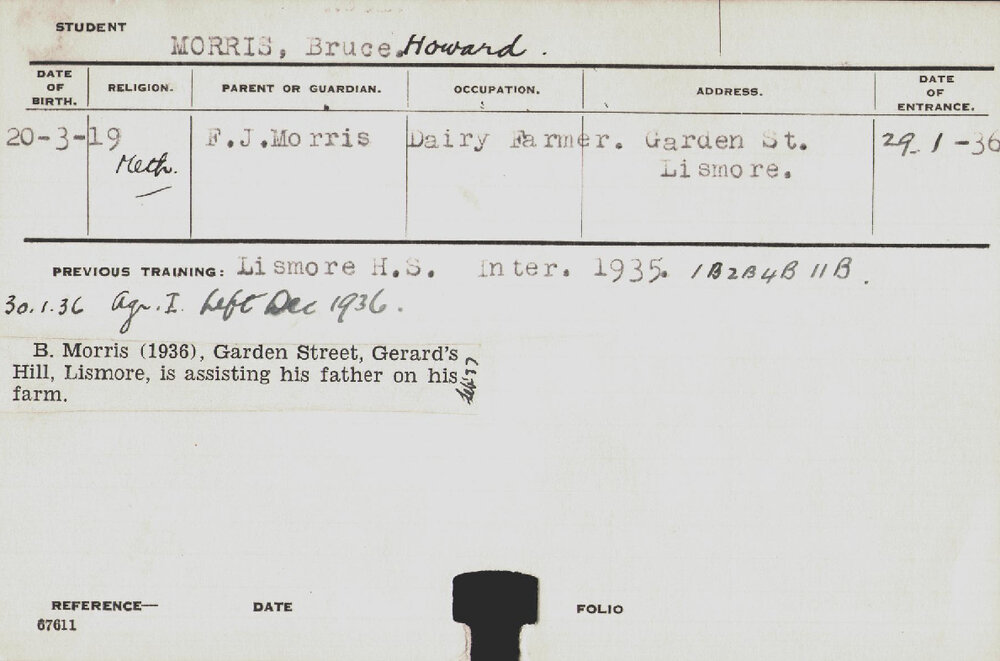 STUDENT
MORRIS, Bruce. Howard.
DATE OF BIRTH. RELIGION. PARENT OR GUARDIAN. OCCUPATION. ADDRESS. DATE OF ENTRANCE.
20-3-19 Meth. F.J.Morris Dairy Farmer. Garden St. 29-1-36
Lismore.
PREVIOUS TRAINING: Lismore H.S. Inter. 1935. 1B 2B 4B 11B.
30.1.36 Agr. I. Left Dec 1936.
B. Morris (1936), Garden Street, Gerard's
Hill, Lismore, is assisting his father on his
farm.
REFERENCE— DATE FOLIO
67611